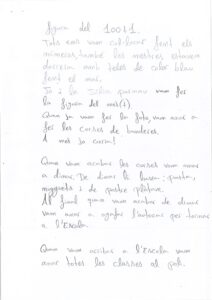 figura del 100+1.
Tots ens vam col·locar fent els
números, també les mestres estaven
amb teles de color blau
fent el mar.
Jo i la Sílvia vam fer
la figura del
Quan ja vam fer la foto, vam anar a
fer les curses de banderes.
A mi ja
Quan vam acabar les curses vam anar
a dinar. De dinar hi havia: pasta,
nuggets i de postre plàtan.
Al final quan vam acabar de dinar
vam anar a agafar l'autocar per tornar
a l'Escola.
Quan vam arribar a l'Escola vam
anar totes les classes al pati.